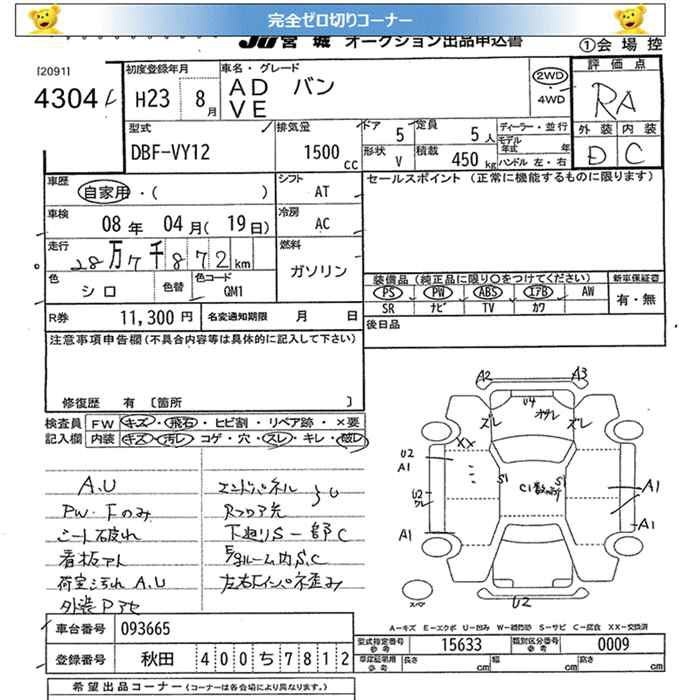 完全ゼロ切りコーナー
JU宮城 オークション出品申込書
①会場控
[2091]
4304
初度登録年月 H23 8月
車名・グレード AD バン
VE
2WD
・4WD
評価点
RA
外装 内装
D C
型式 DBF-VY12
排気量 1500cc
ドア 5
定員 5人
形状 V
積載 450kg
ディーラー・並行
モデル年式 年
ハンドル 左・右
車歴 自家用・( )
シフト AT
車検 08年 04月(19日)
冷房 AC
走行 28万7千872km
燃料 ガソリン
色 シロ
色替
色コード QM1
セールスポイント (正常に機能するものに限ります)
装備品(純正品に限り○をつけてください)
新車保証書
PS PW ABS エアB AW
SR ナビ TV カワ
有・無
R券 11,300円
名変通知期限 月 日
後日品
注意事項申告欄(不具合内容等は具体的に記入して下さい)
修復歴 有 〔箇所 〕
検査員 FW キズ・飛石・ヒビ割・リペア跡・×要
記入欄 内装 キズ・汚レ・コゲ・穴・スレ・キレ・破レ
A.U
PW・Fのみ
シート破れ
看板アト
荷室汚れ A.U
外装Pアセ
エンドパネル
Rフロア先
U
下廻りS一部C
E/gルーム内S.C
左右Fインパネ歪み
A2 A3
U4
オサレ
ズレ ズレ
XX
U2
A1
S1 S1
C1
U2
ワレ
A1
A1
A1
U2
スペア
A-キズ E-エクボ U-凹み W-補修跡 S-サビ C-腐食 XX-交換済
車台番号 093665
型式指定番号 参考 15633
類別区分番号 参考 0009
登録番号 秋田 400 ち 7812
車庫証明用 参考 長さ cm 幅 cm 高さ cm
希望出品コーナー(コーナーは各会場により異なります。)